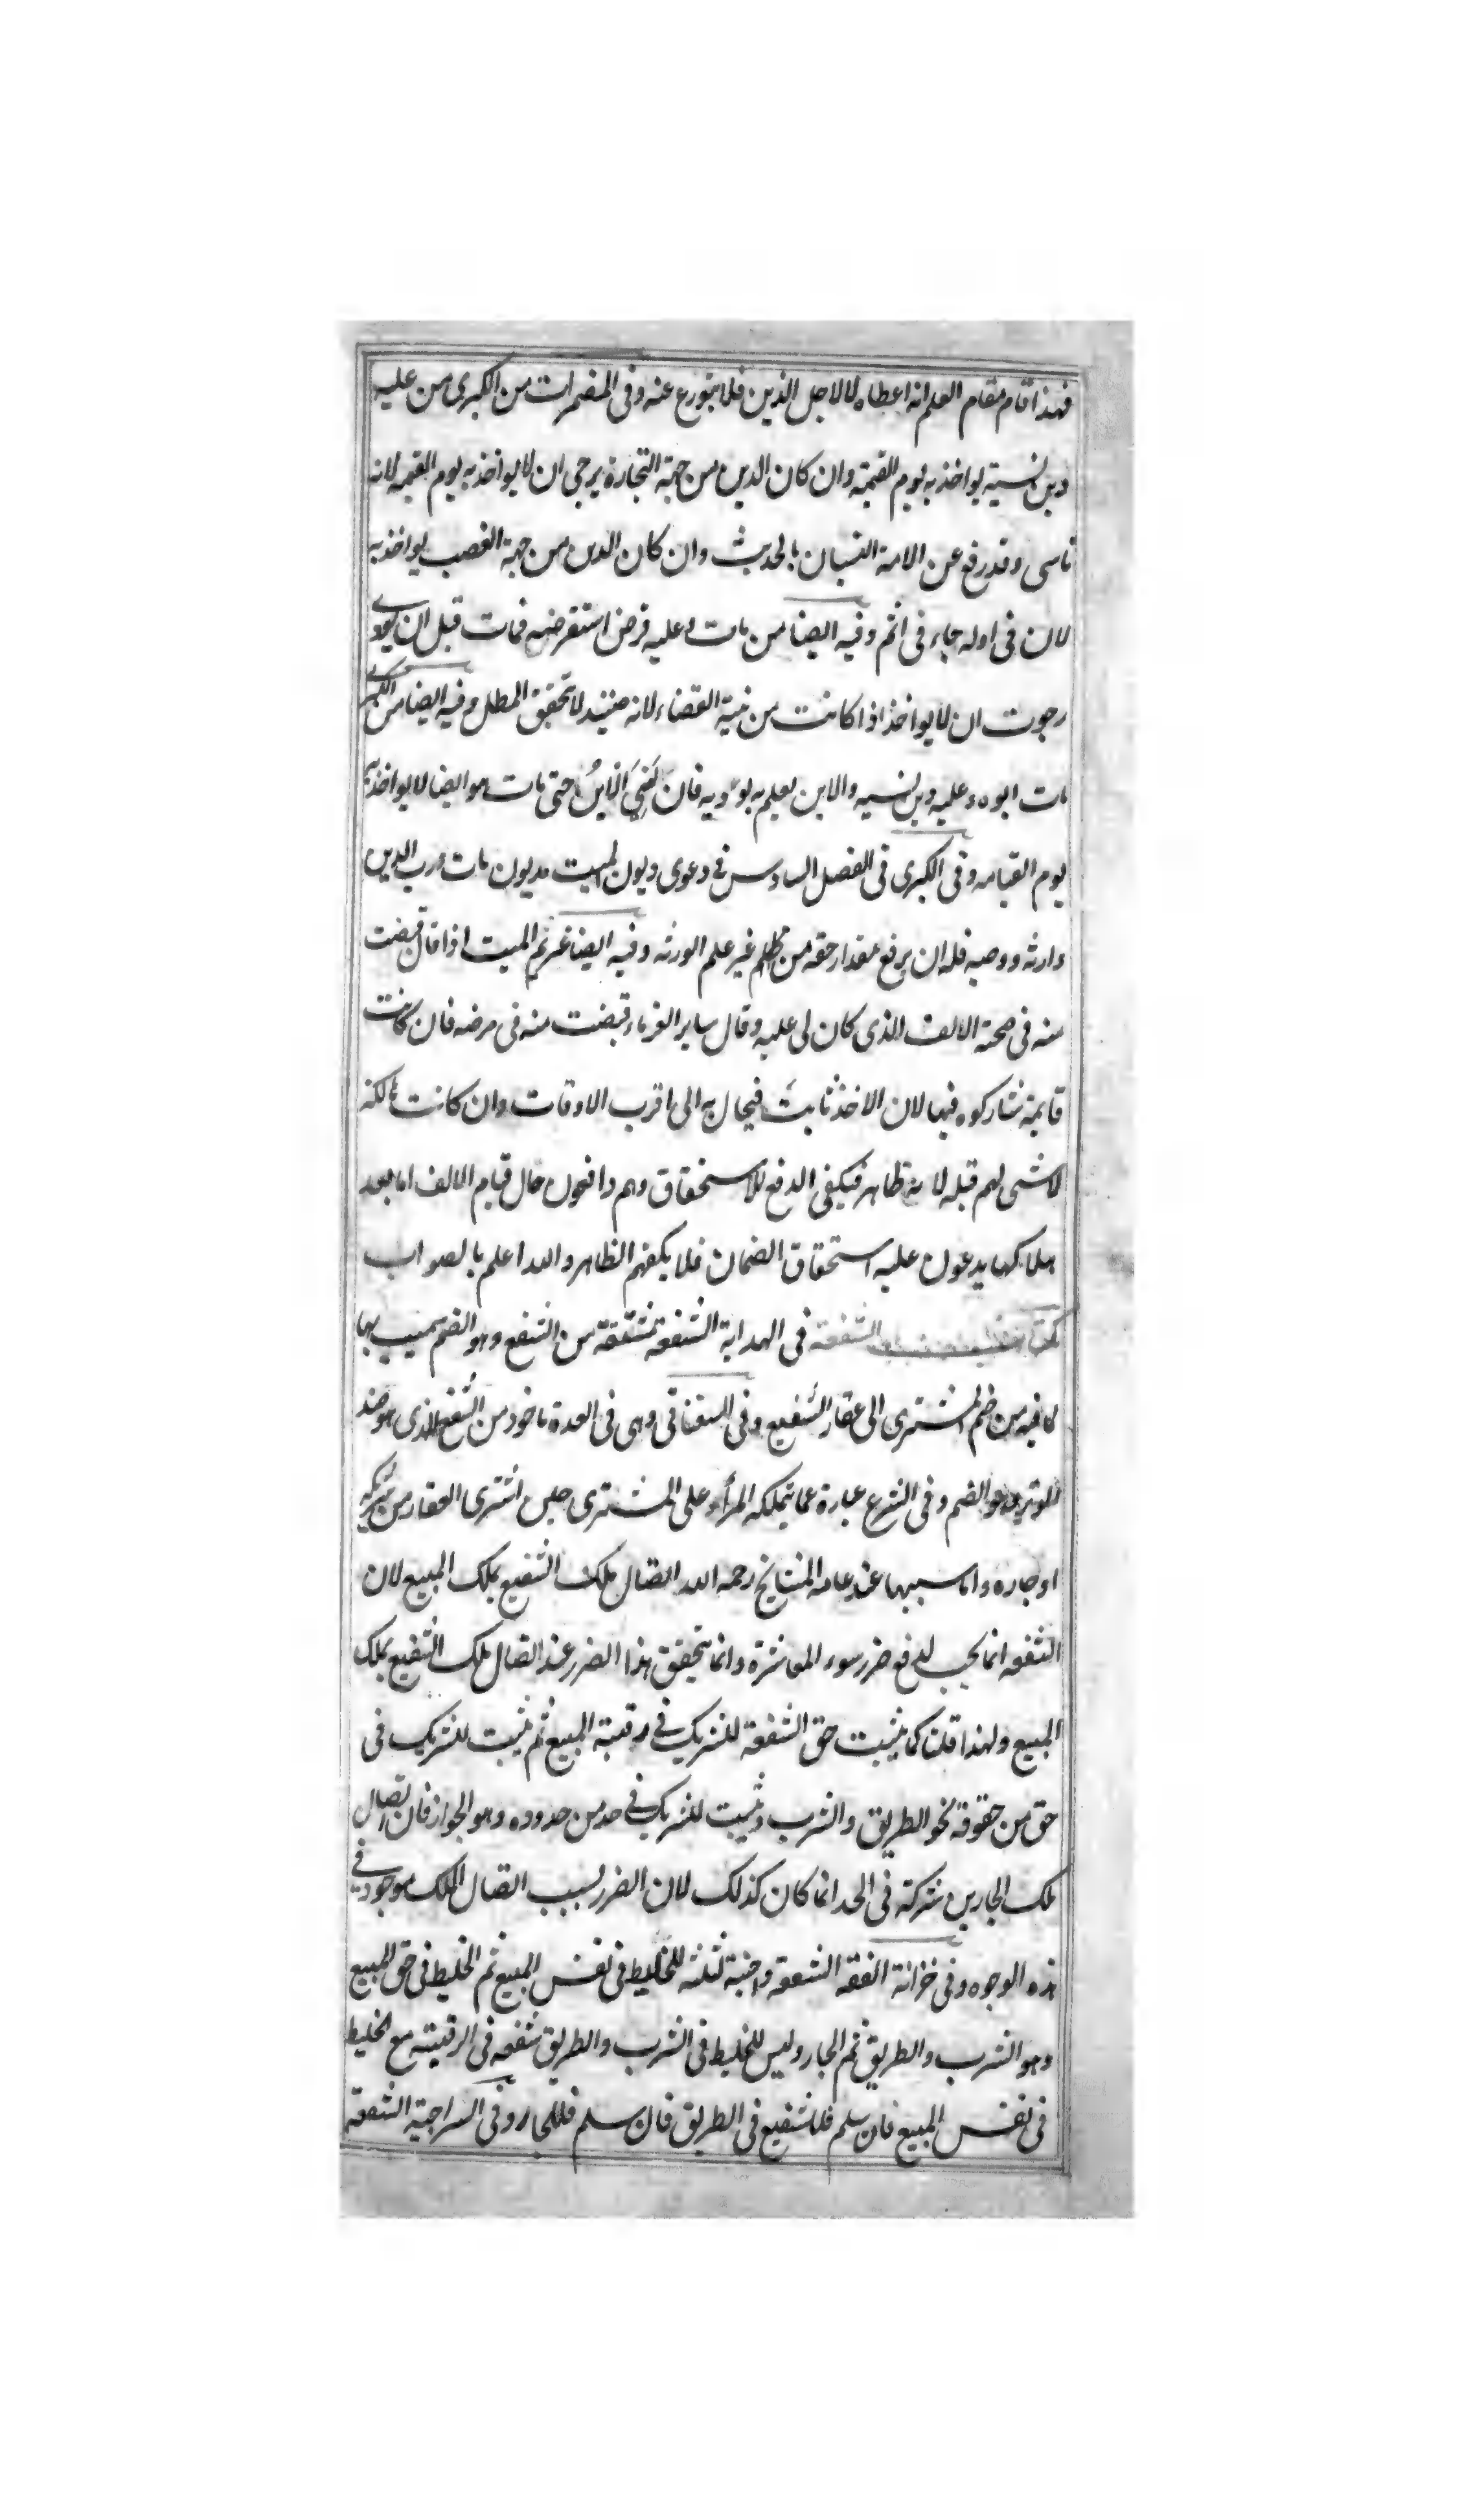 فهذا قام مقام العلم انه اعطاه لا لاجل الدين فلا يتورع عنه وفى المضمرات من الكبرى من عليه
دين نسيه يواخذ به يوم القيمة وان كان الدين من جهة التجارة يرجى ان لا يواخذ به يوم القيمة لانه
ناسى وقد رفع عن الامة النسيان بالحديث وان كان الدين من جهة الغصب يواخذ به
لان فى اوله جاء فى اثم وفيه ايضا من مات وعليه قرض استقرضه فمات قبل ان يودى
رجوت ان لا يواخذ اذا كانت من نيته القضاء لانه حينئذ لا تحقق المطل وفيه ايضا من الكبرى
مات ابوه وعليه دين نسيه والابن يعلم به يوديه فان نسى الابن حتى مات هو ايضا لا يواخذ به
يوم القيامه وفى الكبرى فى الفصل السادس فى دعوى ديون الميت مديون مات ورب الدين
وارثه ووصيه فله ان يرفع مقدار حقه من غير علم الورثه وفيه ايضا غريم الميت اذا قال قبضت
منه فى صحته الالف الذى كان لى عليه وقال ساير الغرماء قبضت منه فى مرضه فان كانت
قايمة شاركوه فيها لان الاخذ ثابت فيحال به الى اقرب الاوقات وان كانت هالكة
لا شىء لهم قبله لانه ظاهر فيكفى الدفع للاستحقاق وهم دافعون حال قيام الالف اما بعد
هلاكها يدعون عليه استحقاق الضمان فلا يكفهم الظاهر والله اعلم بالصواب
الشفعة فى الهداية الشفعة مشتقة من الشفع وهو الضم سميت بها
لما فيه من ضم المشترى الى عقار الشفيع وفى السغناقى وهى فى العدة ماخوذ من الشفع الذى هو ضد
الوتر وهو الضم وفى الشرع عبارة عما يتملكه المرأ على المشترى حين اشترى العقار من شريكه
او جاره واما سببها عند عامة المشايخ رحمه الله اتصال ملك الشفيع بملك المبيع لان
الشفعه انما يجب لدفع ضرر سوء المعاشرة وانما يتحقق هذا الضرر عند اتصال ملك الشفيع بملك
المبيع ولهذا قلنا كما يثبت حق الشفعة للشريك فى رقبة المبيع ثم يثبت للشريك فى
حق من حقوقه نحو الطريق والشرب ويثبت للشريك فى حد من حدوده وهو الجوار فان اتصال
ملك الجارين شركة فى الحد انما كان كذلك لان الضرر بسبب اتصال الملك موجود فى
هذه الوجوه وفى خزانة الفقه الشفعة واجبة لثلثة للخليط فى نفس المبيع ثم الخليط فى حق المبيع
وهو الشرب والطريق ثم الجار وليس للخليط فى الشرب والطريق شفعه فى الرقبته مع الخليط
فى نفس المبيع فان سلم فللشفيع فى الطريق فان سلم فللجار وفى السراجية الشفعة